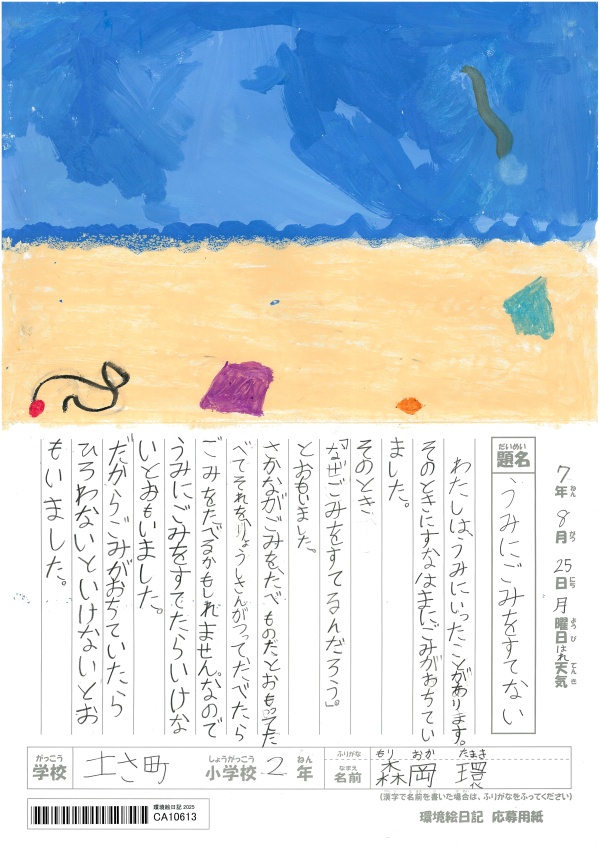 7年8月25日月曜日はれ天気
ねん がつ にち ようび てんき
だいめい
題名 うみにごみをすてない
わたしは、うみにいったことがあります。
そのときにすなはまにごみがおちてい
ました。
そのとき
「なぜごみをすてるんだろう。」
とおもいました。
さかながごみを、たべものだとおもってた
べてそれを、りょうしさんがつってたべたら
ごみをたべるかもしれません。なので
うみにごみをすてたらいけな
いとおもいました。
だからごみがおちていたら
ひろわないといけないとお
もいました。
がっこう しょうがっこう ねん
学校 土さ町 小学校 2年
ふりがな もり おか たまき
なまえ
名前 森岡 環
(漢字で名前を書いた場合は、ふりがなをふってください)
環境絵日記 応募用紙
環境絵日記 2025
CA10613